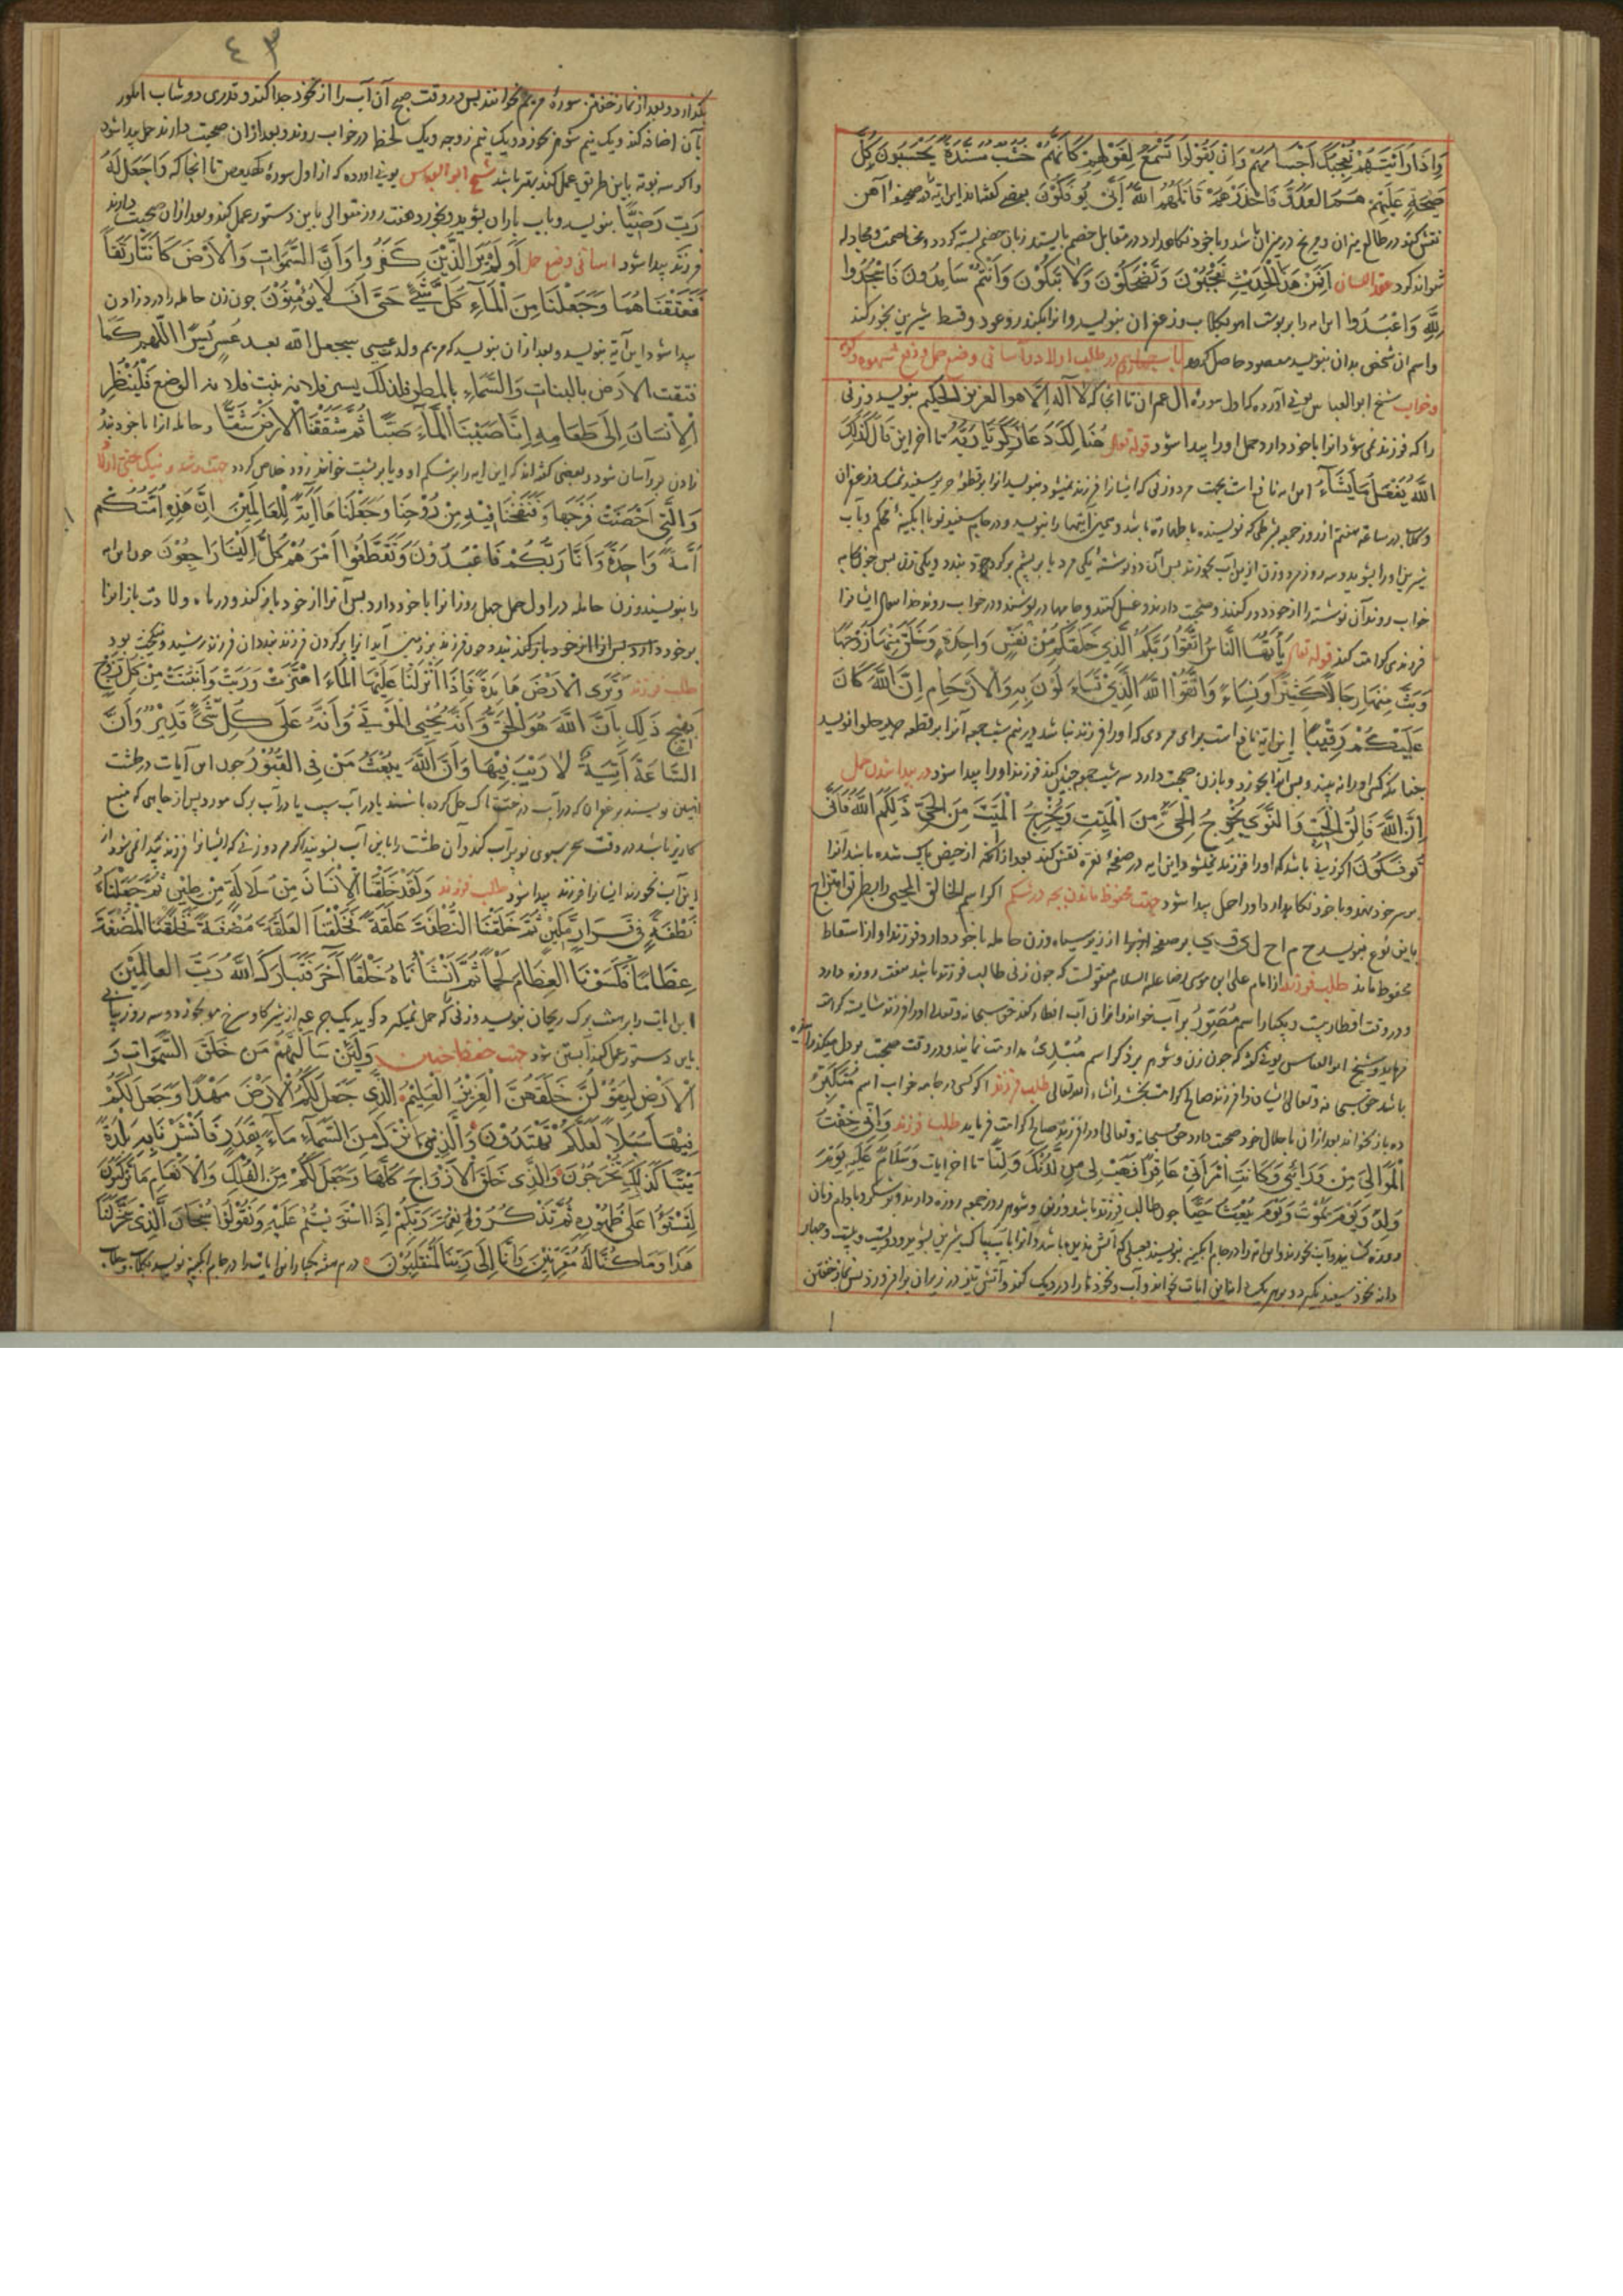 وَإِذَا رَأَيْتَهُمْ تُعْجِبُكَ أَجْسَامُهُمْ وَإِنْ يَقُولُوا تَسْمَعْ لِقَوْلِهِمْ كَأَنَّهُمْ خُشُبٌ مُسَنَّدَةٌ يَحْسَبُونَ كُلَّ
صَيْحَةٍ عَلَيْهِمْ هُمُ الْعَدُوُّ فَاحْذَرْهُمْ قَاتَلَهُمُ اللَّهُ أَنَّى يُؤْفَكُونَ بعضی گفته‌اند این آیه در صحیفهٔ آهن
نقش کند در طالع میزان و مریخ در میزان باشد و با خود نگاهدارد در مقابل خصم بایستد زبان خصم بسته گردد و مخاصمت و مجادله
نتواند کرد عقد اللسان أَفَمِنْ هَذَا الْحَدِيثِ تَعْجَبُونَ وَتَضْحَكُونَ وَلَا تَبْكُونَ وَأَنْتُمْ سَامِدُونَ فَاسْجُدُوا
لِلَّهِ وَاعْبُدُوا این آیه را بر پوست آهو بگلاب و زعفران بنویسد و آنرا بعود و قسط شیرین بخور کند
و اسم آن شخص بدان بنویسد مقصود حاصل گردد باب چهارم در طلب اولاد و آسانی وضع حمل
و خواب شیخ ابوالعباس بونی آورده که اول سورهٔ آل عمران تا آنجا که لا اله الا هو العزیز الحکیم بنویسد و زنی
را که فرزند نمی‌شود آنرا با خود دارد حمل او را پیدا شود قوله تعالی هُنَالِكَ دَعَا زَكَرِيَّا رَبَّهُ تا آخر این قَالَ كَذَلِكَ
اللَّهُ يَفْعَلُ مَا يَشَاءُ این آیه نافع است بجهت مرد و زنی که ایشانرا فرزند نمیشود بنویسد آنرا بر قطعهٔ حریر سفید بمشک و زعفران
و گلاب در ساعة هفتم از روز جمعه بشرطی که نویسنده با طهارة باشد و همین آیتها را بنویسد و در جام سفید نو یا آبگینه محکم و بآب
شیرین او را بشوید و سه روز مرد و زن از این آب بخورند پس آن دو نوشته یکی مرد با
خواب روند آن نوشته را از خود دور کنند و صحبت دارند و غسل کنند و جامها در پوشند و در خواب روند خدا تعالی ایشانرا
فرزندی کرامت کند قوله تعالی يَا أَيُّهَا النَّاسُ اتَّقُوا رَبَّكُمُ الَّذِي خَلَقَكُمْ مِنْ نَفْسٍ وَاحِدَةٍ وَخَلَقَ مِنْهَا زَوْجَهَا
وَبَثَّ مِنْهُمَا رِجَالًا كَثِيرًا وَنِسَاءً وَاتَّقُوا اللَّهَ الَّذِي تَسَاءَلُونَ بِهِ وَالْأَرْحَامَ إِنَّ اللَّهَ كَانَ
عَلَيْكُمْ رَقِيبًا این آیه نافع است برای مردی که او را فرزند نباشد در نیم شب جمعه آنرا بر قطعه حلوا نویسد
چنانکه کسی او را نه بیند و پس آنرا بخورد و با زن صحبت دارد سه شب جمعه چنین کند فرزند او را پیدا شود در پیدا شدن حمل
إِنَّ اللَّهَ فَالِقُ الْحَبِّ وَالنَّوَى يُخْرِجُ الْحَيَّ مِنَ الْمَيِّتِ وَمُخْرِجُ الْمَيِّتِ مِنَ الْحَيِّ ذَلِكُمُ اللَّهُ فَأَنَّى
تُؤْفَكُونَ اگر زنی باشد که او را فرزند نمیشود این آیه در صفحهٔ نقره نقش کند بعد از آنکه از حیض پاک شده باشد آنرا
بر سر خود بندد و با خود نگاهدارد او را حمل پیدا شود جهت محفوظ ماندن بچه در شکم اگر اسم الخالق المحیی را بطریق امتزاج
باین نوع بنویسد بر صفحهٔ از زر سیاه و زن حامله با خود دارد فرزند او از اسقاط
محفوظ ماند طلب فرزند از امام علی بن موسی رضا علیه السلام منقولست که چون زنی طالب فرزند باشد هفت روزه دارد
و در وقت افطار بیست و یکبار اسم مُصَوِّرُ بر آب خواند و از آن آب افطار کند حق سبحانه و تعالی او را فرزند شایسته کرامت
فرماید و شیخ ابوالعباس بونی گوید که چون زن و شوهر بر ذکر اسم مُبْدِئُ مداومت نمایند و در وقت صحبت بر دل میگذرانیده
باشد حق سبحانه و تعالی ایشانرا فرزند صالح کرامت بخشد انشاء الله تعالی طلب فرزند اگر کسی در جامه خواب اسم مُتَكَبِّرُ
ده بار بخواند بعد از آن با حلال خود صحبت دارد حق سبحانه و تعالی او را فرزند صالح کرامت فرماید طلب فرزند وَإِنِّي خِفْتُ
الْمَوَالِيَ مِنْ وَرَائِي وَكَانَتِ امْرَأَتِي عَاقِرًا فَهَبْ لِي مِنْ لَدُنْكَ وَلِيًّا تا آخر آیات وَسَلَامٌ عَلَيْهِ يَوْمَ
وُلِدَ وَيَوْمَ يَمُوتُ وَيَوْمَ يُبْعَثُ حَيًّا چون طالب فرزند باشد زن و شوهر روز جمعه روزه دارند و بشکر و بادام و نان
روزه گشایند و آب نخورند و این آیه را در جام آبگینه نویسند بعسلی که آتش ندیده باشد و آنرا بآب پاک شیرین بشوید و دویست و بیست و چهار
دانه نخود سفید بگیرد و بر هر یک دانه این آیات بخواند و آب و نخود را در دیک کند و آتش تیز در زیر آن برافروزد پس نماز خفتن
٤٣
بگذارد و بعد از نماز خفتن سورهٔ مریم بخوانند پس در وقت صبح آن آب را از نخود جدا کند و قدری دوشاب انگور
بآن اضافه کند و یک نیم شوهر بخورد و یک نیم زوجه و یک لحظه در خواب روند و بعد از آن صحبت دارند حمل پیدا شود
و اگر سه نوبه باین طریق عمل کند بهتر باشد شیخ ابو العباس بونی آورده که از اول سورهٔ کهیعص تا آنجا که وَاجْعَلْهُ
رَبِّ رَضِيًّا بنویسد و بآب باران بشوید و بخورد هفت روز متوالی باین دستور عمل کند و بعد از آن صحبت دارند
فرزند پیدا شود آسانی وضع حمل أَوَلَمْ يَرَ الَّذِينَ كَفَرُوا وَأَنَّ السَّمَوَاتِ وَالْأَرْضَ كَانَتَا رَتْقًا
فَفَتَقْنَاهُمَا وَجَعَلْنَا مِنَ الْمَاءِ كُلَّ شَيْءٍ حَيٍّ أَفَلَا يُؤْمِنُونَ چون زن حامله را درد زادن
پیدا شود این آیة بنویسد و بعد از آن بنویسد که مریم ولد عیسی سیجعل الله بعد عُسْرٍ يُسْرًا اللهم كما
فتقت الارض بالنبات وَالسَّمَاءِ بالمطر فلذلک یسر فلانه بنت فلانه الوضع فَلْيَنْظُرِ
الْإِنْسَانُ إِلَى طَعَامِهِ إِنَّا صَبَبْنَا الْمَاءَ صَبًّا ثُمَّ شَقَقْنَا الْأَرْضَ شَقًّا و حامله آنرا با خود بندد
زادن بر او آسان شود و بعضی گفته‌اند که این آیه را بر شکم او و یا بر پشت خوانند زود خلاص گردد
وَالَّتِي أَحْصَنَتْ فَرْجَهَا فَنَفَخْنَا فِيهِ مِنْ رُوحِنَا وَجَعَلْنَاهَا آيَةً لِلْعَالَمِينَ إِنَّ هَذِهِ أُمَّتُكُمْ
أُمَّةً وَاحِدَةً وَأَنَا رَبُّكُمْ فَاعْبُدُونَ وَتَقَطَّعُوا أَمْرَهُمْ كُلٌّ إِلَيْنَا رَاجِعُونَ چون این آیه
را بنویسند و زن حامله در اول حمل چهل روز آنرا با خود دارد پس آنرا از خود باز کند و در ماه ولادت باز آنرا
بر خود دارد پس آنرا از خود باز کنند چون فرزند بزمین آید آنرا بر گردن فرزند بندد آن فرزند رشید و نیکبخت بود
طلب فرزند وَتَرَى الْأَرْضَ هَامِدَةً فَإِذَا أَنْزَلْنَا عَلَيْهَا الْمَاءَ اهْتَزَّتْ وَرَبَتْ وَأَنْبَتَتْ مِنْ كُلِّ زَوْجٍ
بَهِيجٍ ذَلِكَ بِأَنَّ اللَّهَ هُوَ الْحَقُّ وَأَنَّهُ يُحْيِي الْمَوْتَى وَأَنَّهُ عَلَى كُلِّ شَيْءٍ قَدِيرٌ وَأَنَّ
السَّاعَةَ آتِيَةٌ لَا رَيْبَ فِيهَا وَأَنَّ اللَّهَ يَبْعَثُ مَنْ فِي الْقُبُورِ چون این آیات در طشت
نویسند بزعفران که در آب درخت تاک حل کرده باشند یا در آب سیب یا در آب برک مورد پس از چاهی که منبع
کاریز باشد در وقت سحر سبوی نو پر آب کند و آن طشت را باین آب بشویند اگر مرد و زنی که ایشانرا فرزند پیدا نمی‌شود از
این آب بخورند ایشانرا فرزند پیدا شود طلب فرزند وَلَقَدْ خَلَقْنَا الْإِنْسَانَ مِنْ سُلَالَةٍ مِنْ طِينٍ ثُمَّ جَعَلْنَاهُ
نُطْفَةً فِي قَرَارٍ مَكِينٍ ثُمَّ خَلَقْنَا النُّطْفَةَ عَلَقَةً فَخَلَقْنَا الْعَلَقَةَ مُضْغَةً فَخَلَقْنَا الْمُضْغَةَ
عِظَامًا فَكَسَوْنَا الْعِظَامَ لَحْمًا ثُمَّ أَنْشَأْنَاهُ خَلْقًا آخَرَ فَتَبَارَكَ اللَّهُ رَبُّ الْعَالَمِينَ
این آیات را بر هشت برک ریحان بنویسد و زنی که حمل نمیگیرد گوید یک جرعه از شیر گاو سرخ مو بخورد و سه روز پیاپی
باین دستور عمل کند آبستن شود جهت حفظ جنین وَلَئِنْ سَأَلْتَهُمْ مَنْ خَلَقَ السَّمَوَاتِ وَ
الْأَرْضَ لَيَقُولُنَّ خَلَقَهُنَّ الْعَزِيزُ الْعَلِيمُ الَّذِي جَعَلَ لَكُمُ الْأَرْضَ مَهْدًا وَجَعَلَ لَكُمْ
فِيهَا سُبُلًا لَعَلَّكُمْ تَهْتَدُونَ وَالَّذِي نَزَّلَ مِنَ السَّمَاءِ مَاءً بِقَدَرٍ فَأَنْشَرْنَا بِهِ بَلْدَةً
مَيْتًا كَذَلِكَ تُخْرَجُونَ وَالَّذِي خَلَقَ الْأَزْوَاجَ كُلَّهَا وَجَعَلَ لَكُمْ مِنَ الْفُلْكِ وَالْأَنْعَامِ مَا تَرْكَبُونَ
لِتَسْتَوُوا عَلَى ظُهُورِهِ ثُمَّ تَذْكُرُوا نِعْمَةَ رَبِّكُمْ إِذَا اسْتَوَيْتُمْ عَلَيْهِ وَتَقُولُوا سُبْحَانَ الَّذِي سَخَّرَ لَنَا
هَذَا وَمَا كُنَّا لَهُ مُقْرِنِينَ وَإِنَّا إِلَى رَبِّنَا لَمُنْقَلِبُونَ در هر هفته یکبار این آیات را در جام آبگینه نویسد بگلاب